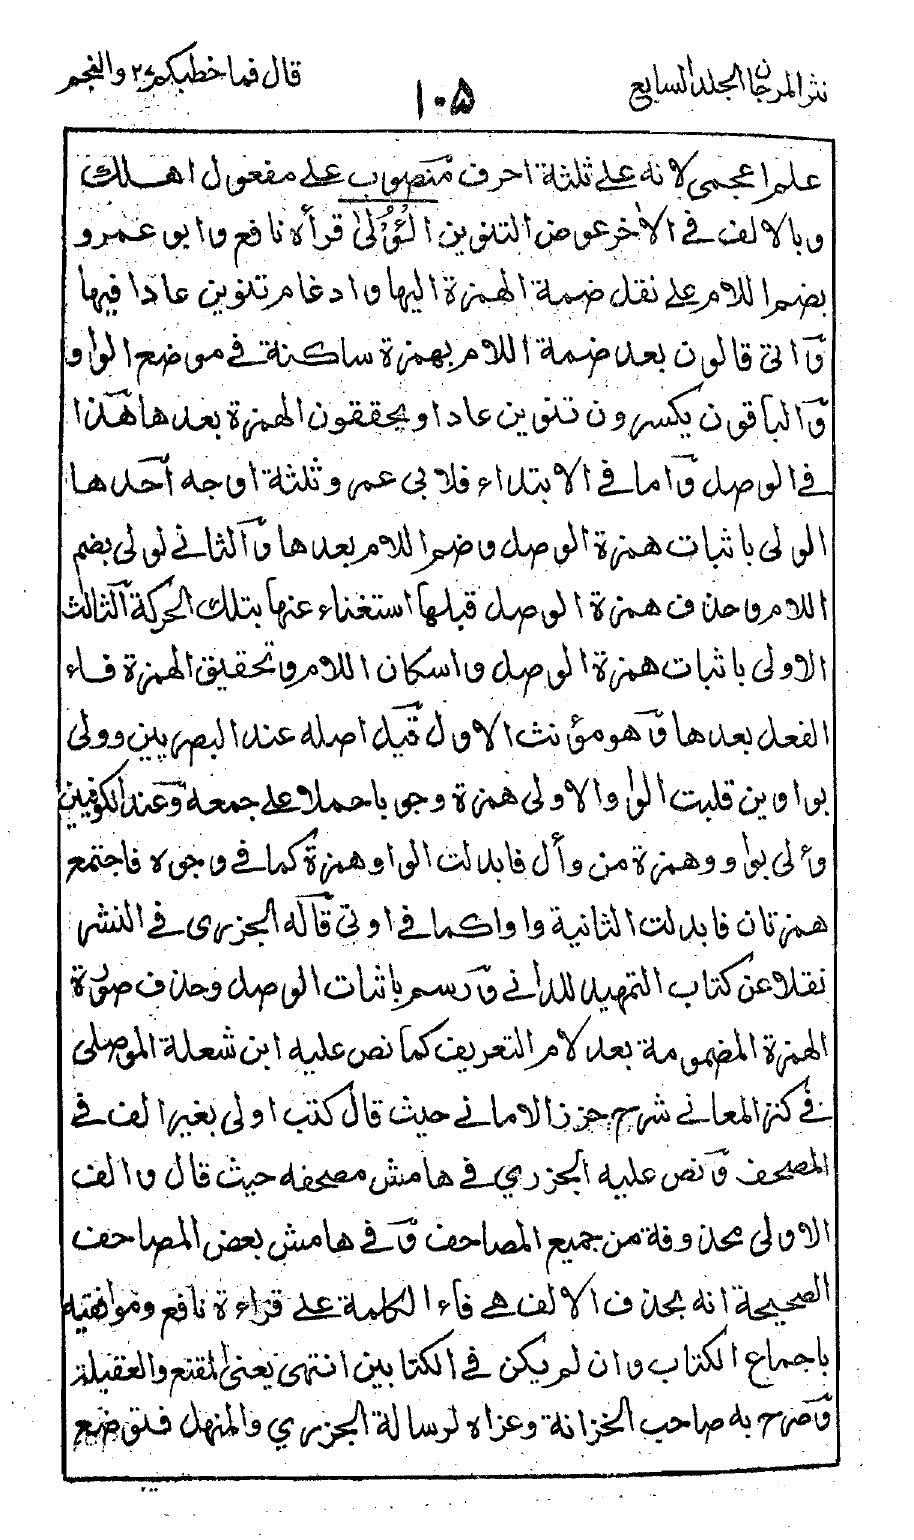 نثر المرجان المجلد السابع
١٠٥
قال فما خطبكم ٢٧ والنجم
علم اعجمى لانه على ثلثة احرف منصوب على مفعول اهلك
وبالالف فى الاخر عوض التنوين الُؤْلىٰ قرأه نافع وابو عمرو
بضم اللام على نقل ضمة الهمزة اليها وادغام تنوين عادا فيها
وآتى قالون بعد ضمة اللام بهمزة ساكنة فى موضع الواو
والباقون يكسرون تنوين عادا ويحققون الهمزة بعدها هذا
فى الوصل واما فى الابتداء فلابى عمرو ثلثة اوجه احدها
الولى باثبات همزة الوصل وضم اللام بعدها والثانى لولى بضم
اللام وحذف همزة الوصل قبلها استغناء عنها بتلك الحركة الثالث
الاولى باثبات همزة الوصل واسكان اللام وتحقيق الهمزة فاء
الفعل بعدها وهو مؤنث الاول قيل اصله عند البصريين وولى
بواوين قلبت الواو الاولى همزة وجوبا حملا على جمعه وعند الكوفيين
وءلى بواو وهمزة من وأل فابدلت الواو همزة كما فى وجوه فاجتمع
همزتان فابدلت الثانية واوا كما فى اوتى قاله الجزرى فى النشر
نقلا عن كتاب التمهيد للدانى ورسم باثبات الوصل وحذف صورة
الهمزة المضمومة بعد لام التعريف كما نص عليه ابن شعلة الموصلى
فى كنز المعانى شرح حرز الامانى حيث قال كتب اولى بغير الف فى
المصحف ونص عليه الجزري فى هامش مصحفه حيث قال والف
الاولى محذوفة من جميع المصاحف وفى هامش بعض المصاحف
الصحيحة انه بحذف الالف هى فاء الكلمة على قراءة نافع وموافقيه
باجماع الكتاب وان لم يكن فى الكتابين انتهى يعنى المقنع والعقيلة
وصرح به صاحب الخزانة وعزاه لرسالة الجزري والمنهل فلو وضع